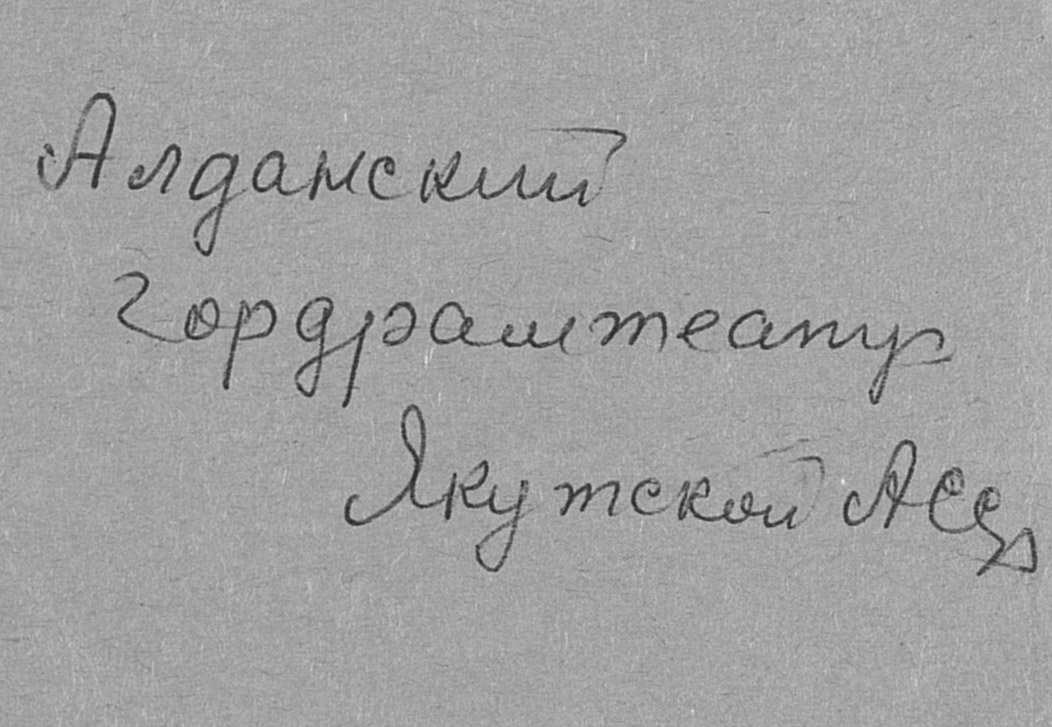 Алданский
гордрамтеатр
Якутской АССР